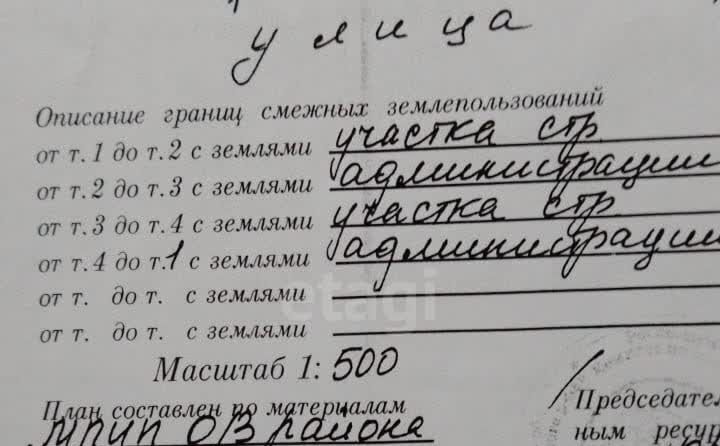 улица
Описание границ смежных землепользований
от т. 1 до т. 2 с землями участка стр
от т. 2 до т. 3 с землями администрации
от т. 3 до т. 4 с землями участка стр
от т. 4 до т. 1 с землями администрации
от т. до т. с землями
от т. до т. с землями
etagi
Масштаб 1: 500
План составлен по материалам
Председател
МПИП ОВ района
ным ресур